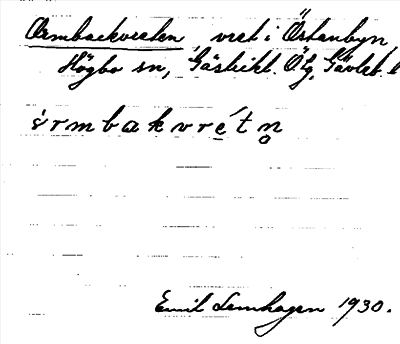 Ormbackvreten vret i Östanbyn,
Högbo sn, Gästrikl. Ötg, Gävleb. l
ò̀rmbakvré̱tn̥
Emil Lemhagen 1930.